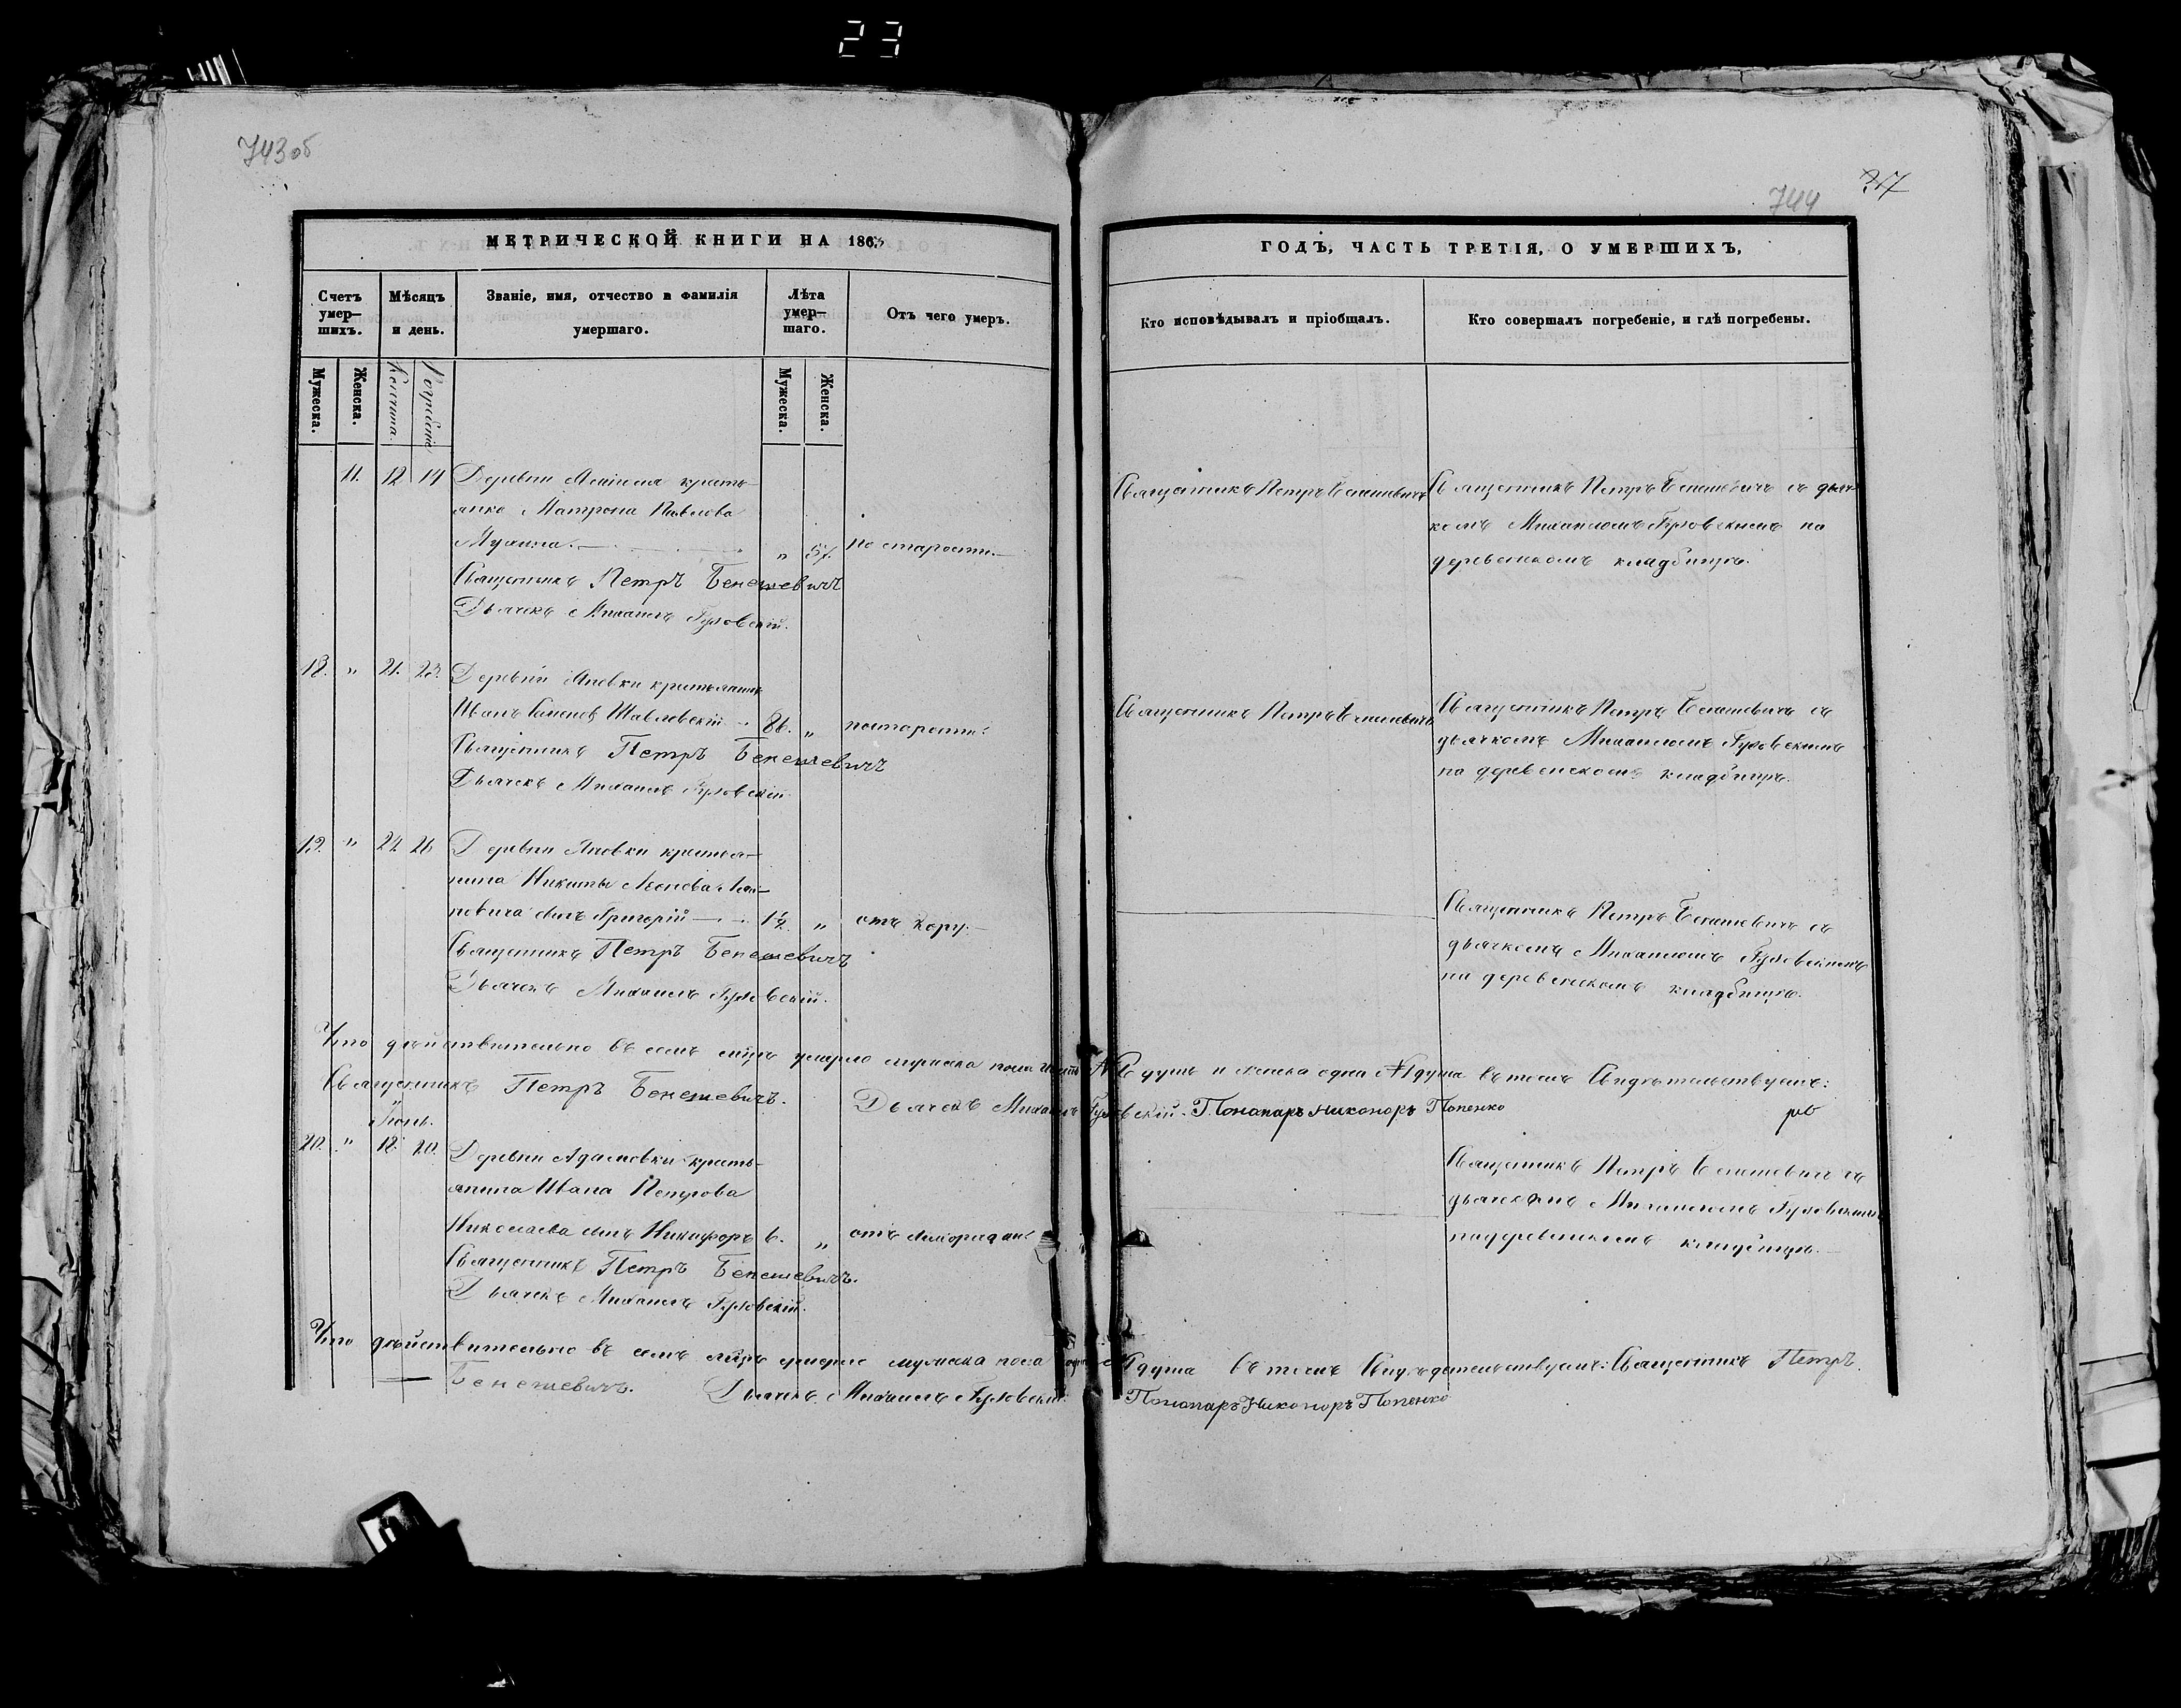 23
743об
744
317
МЕТРИЧЕСКОЙ КНИГИ НА 1863
ГОДЪ, ЧАСТЬ ТРЕТІЯ, О УМЕРШИХЪ,
Счетъ умер-шихъ.
Мѣсяцъ и день.
Званіе, имя, отчество и фамилія умершаго.
Лѣта умер-шаго.
Отъ чего умеръ.
Кто исповѣдывалъ и пріобщалъ.
Кто совершалъ погребеніе, и гдѣ погребены.
Мужеска.
Женска.
Кончина.
Погребенія
Мужеска.
Женска.
11. 12 14 Деревни крестьянка Матрона Павлова
" 57. по старости.
Священникъ Петръ Бенешевичъ
Дьячекъ Михаилъ Гуловскій.
Священникъ Петръ Бенешевичъ
Священникъ Петръ Бенешевичъ съ дьяч-
комъ Михаиломъ Гуловскимъ на
деревенскомъ кладбищѣ.
18. " 21. 23. Деревни Яновки крестьянинъ
Иванъ Семеновъ Павловскій 86. " по старости.
Священникъ Петръ Бенешевичъ
Дьячекъ Михаилъ Гуловскій
Священникъ Петръ Бенешевичъ
Священникъ Петръ Бенешевичъ съ
дьячкомъ Михаиломъ Гуловскимъ
на деревенскомъ кладбищѣ.
19. " 24 26 Деревни Яновки крестья-
нина Никиты
сынъ Григорій 1½ " отъ кору.
Священникъ Петръ Бенешевичъ
Дьячекъ Михаилъ Гуловскій.
Священникъ Петръ Бенешевичъ съ
дьячкомъ Михаиломъ Гуловскимъ
на деревенскомъ кладбищѣ.
Что дѣйствительно въ семъ мѣсяцѣ умерло мужеска пола душъ и женска одна №1 душа въ томъ свидѣтельствуемъ:
Священникъ Петръ Бенешевичъ. Дьячекъ Михаилъ Гуловскій. Пономаръ Никоноръ Попенко
Іюнь.
20. " 18. 20. Деревни Адамовки кресть-
янина Ивана Петрова
Николаева сынъ Никифоръ 6. " отъ лихорадки
Священникъ Петръ Бенешевичъ.
Дьячекъ Михаилъ Гуловскій.
Священникъ Петръ Бенешевичъ съ
дьячкомъ Михаиломъ Гуловскимъ
на деревенскомъ кладбищѣ.
Что дѣйствительно въ семъ мѣсяцѣ умерло мужеска пола одна №1 душа въ томъ свидѣтельствуемъ: Священникъ Петръ
Бенешевичъ. Дьячекъ Михаилъ Гуловскій. Пономаръ Никоноръ Попенко